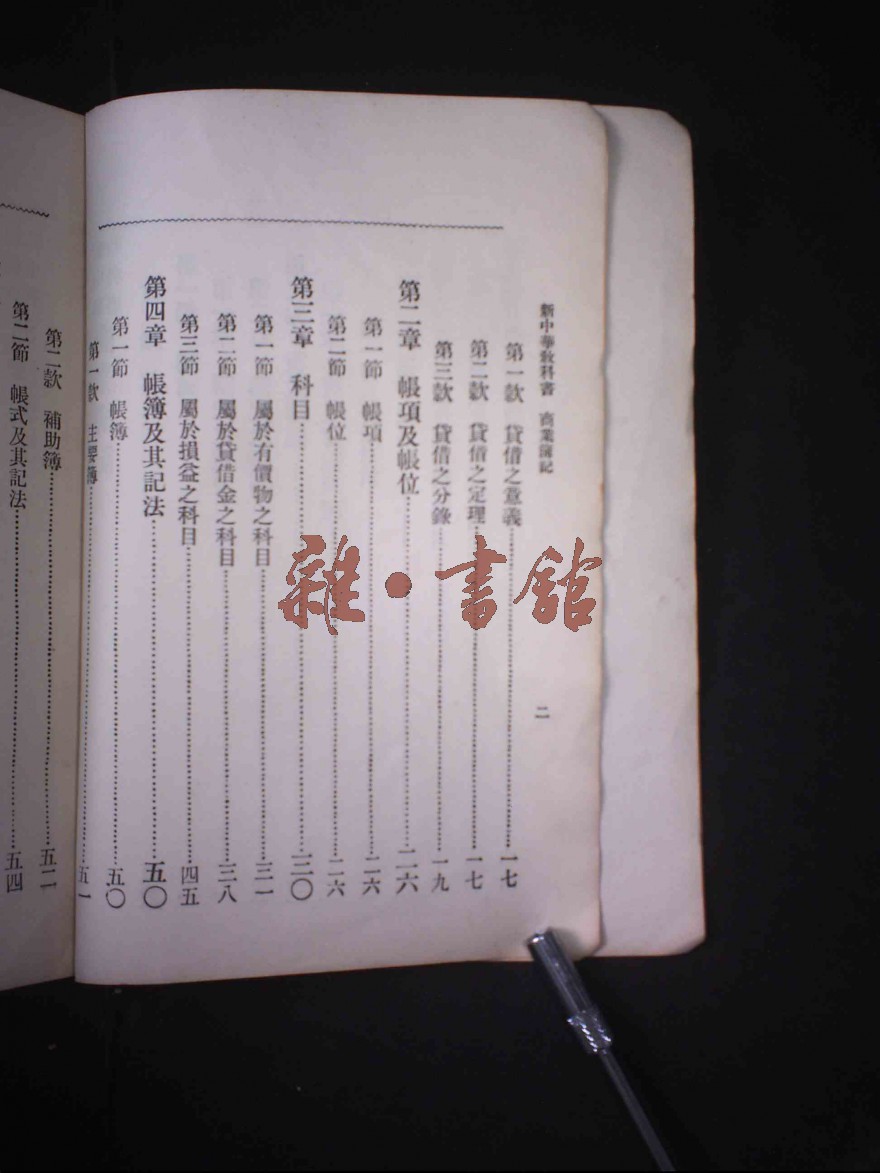 新中華教科書 商業簿記
二
第一款 貸借之意義 一七
第二款 貸借之定理 一七
第三款 貸借之分錄 一九
第二章 帳項及帳位 二六
第一節 帳項 二六
第二節 帳位 二六
第三章 科目 三〇
第一節 屬於有價物之科目 三一
第二節 屬於貸借金之科目 三八
第三節 屬於損益之科目 四五
第四章 帳簿及其記法 五〇
第一節 帳簿 五〇
第一款 主要簿 五一
第二款 補助簿 五二
第二節 帳式及其記法 五四
雜·書館